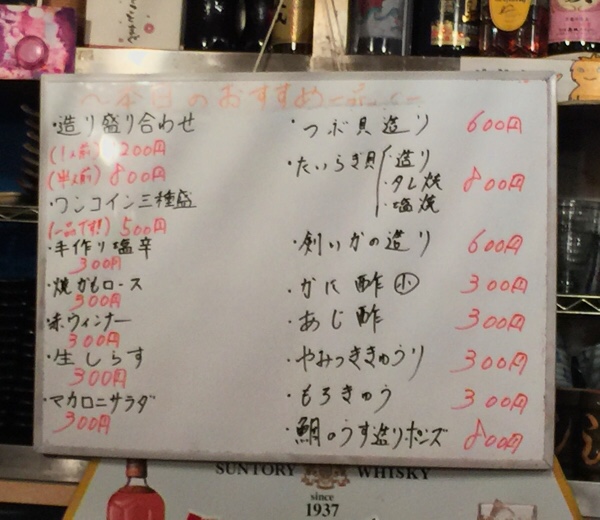 ～本日のおすすめ一品～
・造り盛り合わせ
(1人前) 1200円
(半人前) 800円
・ワンコイン三種盛
(一品です!) 500円
・手作り塩辛
300円
・焼がもロース
300円
・赤ウィンナー
300円
・生しらす
300円
・マカロニサラダ
300円
・つぶ貝造り 600円
・たいらぎ貝 ・造り
・タレ焼 800円
・塩焼
・剣いかの造り 600円
・かに酢 小 300円
・あじ酢 300円
・やみつききゅうり 300円
・もろきゅう 300円
・鯛のうす造りポンズ 800円
SUNTORY WHISKY
since
1937